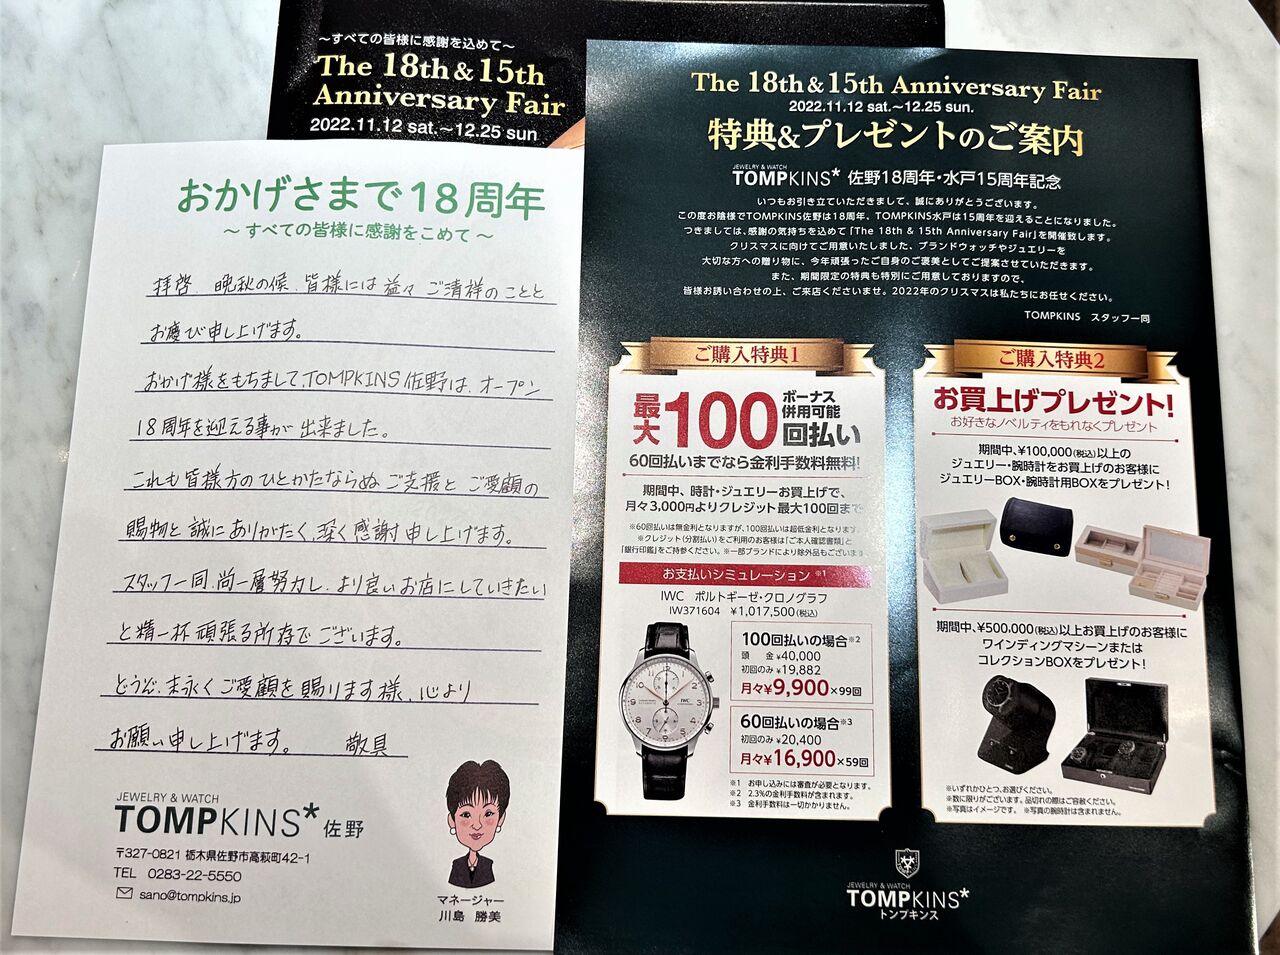 ～すべての皆様に感謝を込めて～
The 18th & 15th
Anniversary Fair
2022.11.12 sat.～12.25 sun
おかげさまで18周年
～ すべての皆様に感謝をこめて ～
拝啓 晩秋の候、皆様には益々ご清祥のことと
お慶び申し上げます。
おかげ様をもちまして、TOMPKINS佐野は、オープン
18周年を迎える事が出来ました。
これも皆様方のひとかたならぬご支援とご愛顧の
賜物と誠にありがたく、深く感謝申し上げます。
スタッフ一同、尚一層努力し、より良いお店にしていきたい
と精一杯頑張る所存でございます。
どうぞ、末永くご愛顧を賜ります様、心より
お願い申し上げます。 敬具
JEWELRY & WATCH
TOMPKINS* 佐野
〒327-0821 栃木県佐野市高萩町42-1
TEL 0283-22-5550
sano@tompkins.jp
マネージャー
川島 勝美
The 18th & 15th Anniversary Fair
2022.11.12 sat.～12.25 sun.
特典&プレゼントのご案内
JEWELRY & WATCH
TOMPKINS* 佐野18周年・水戸15周年記念
いつもお引き立ていただきまして、誠にありがとうございます。
この度お陰様でTOMPKINS佐野は18周年、TOMPKINS水戸は15周年を迎えることになりました。
つきましては、感謝の気持ちを込めて「The 18th & 15th Anniversary Fair」を開催致します。
クリスマスに向けてご用意いたしました、ブランドウォッチやジュエリーを
大切な方への贈り物に、今年頑張ったご自身のご褒美としてご提案させていただきます。
また、期間限定の特典も特別にご用意しておりますので、
皆様お誘い合わせの上、ご来店くださいませ。2022年のクリスマスは私たちにお任せください。
TOMPKINS スタッフ一同
ご購入特典1
最大100回払い
ボーナス併用可能
60回払いまでなら金利手数料無料!
期間中、時計・ジュエリーお買上げで、
月々3,000円よりクレジット最大100回まで
※60回払いは無金利となりますが、100回払いは超低金利となります。
※クレジット(分割払い)をご利用のお客様は「ご本人確認書類」と
「銀行印鑑」をご持参ください。※一部ブランドにより除外品もございます
お支払いシミュレーション ※1
IWC ポルトギーゼ・クロノグラフ
IW371604 ¥1,017,500(税込)
IWC
100回払いの場合※2
頭 金 ¥40,000
初回のみ ¥19,882
月々¥9,900×99回
60回払いの場合※3
初回のみ ¥20,400
月々¥16,900×59回
※1 お申し込みには審査が必要となります。
※2 2.3%の金利手数料が含まれます。
※3 金利手数料は一切かかりません。
ご購入特典2
お買上げプレゼント!
お好きなノベルティをもれなくプレゼント
期間中、¥100,000(税込)以上の
ジュエリー・腕時計をお買上げのお客様に
ジュエリーBOX・腕時計用BOXをプレゼント!
期間中、¥500,000(税込)以上お買上げのお客様に
ワインディングマシーンまたは
コレクションBOXをプレゼント!
※いずれかひとつ、お選びください。
※数に限りがございます。品切れの際はご容赦ください。
※写真はイメージです。 ※写真の腕時計は含まれません。
JEWELRY & WATCH
TOMPKINS*
トンプキンス